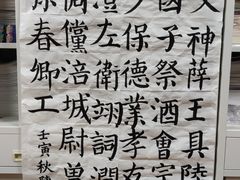 神薛王具陵
國子祭酒會宗
少保德業孝友
澄左衛翊詞潤
倜儻涪城尉曾
春卿工
壬寅秋